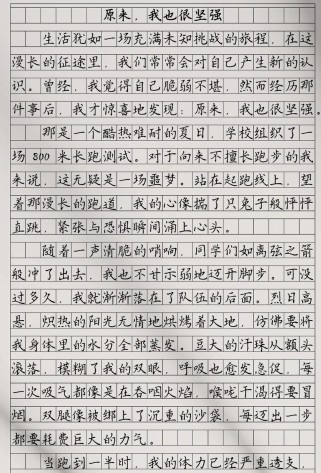 原来，我也很坚强
生活犹如一场充满未知挑战的旅程，在这
漫长的征途里，我们常常会对自己产生新的认
识。曾经，我觉得自己脆弱不堪，然而经历那
件事后，我才惊喜地发现：原来，我也很坚强。
那是一个酷热难耐的夏日，学校组织了一
场800米长跑测试。对于向来不擅长跑步的我
来说，这无疑是一场噩梦。站在起跑线上，望
着那漫长的跑道，我的心像揣了只兔子般怦怦
直跳，紧张与恐惧瞬间涌上心头。
随着一声清脆的哨响，同学们如离弦之箭
般冲了出去，我也不甘示弱地迈开脚步。可没
过多久，我就渐渐落在了队伍的后面。烈日高
悬，炽热的阳光无情地烘烤着大地，仿佛要将
我身体里的水分全部蒸发。豆大的汗珠从额头
滚落，模糊了我的双眼，呼吸也愈发急促，每
一次吸气都像是在吞咽火焰，喉咙干渴得要冒
烟。双腿像被绑上了沉重的沙袋，每迈出一步
都要耗费巨大的力气。
当跑到一半时，我的体力已经严重透支，